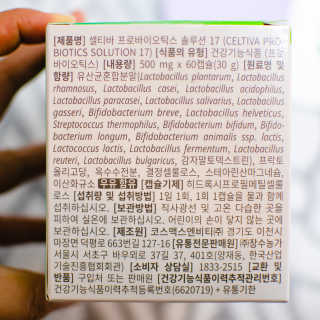 [제품명] 셀티바 프로바이오틱스 솔루션 17 (CELTIVA PRO-
BIOTICS SOLUTION 17) [식품의 유형] 건강기능식품 (프로
바이오틱스) [내용량] 500 mg x 60캡슐(30 g) [원료명 및
함량] 유산균혼합분말(Lactobacillus plantarum, Lactobacillus
rhamnosus, Lactobacillus casei, Lactobacillus acidophilus,
Lactobacillus paracasei, Lactobacillus salivarius, Lactobacillus
gasseri, Bifidobacterium breve, Lactobacillus helveticus,
Streptococcus thermophilus, Bifidobacterium bifidum, Bifido-
bacterium longum, Bifidobacterium animalis ssp. lactis,
Lactococcus lactis, Lactobacillus fermentum, Lactobacillus
reuteri, Lactobacillus bulgaricus, 감자말토덱스트린), 프락토
올리고당, 옥수수전분, 결정셀룰로스, 스테아린산마그네슘,
이산화규소 우유 함유 [캡슐기제] 히드록시프로필메틸셀룰
로스 [섭취량 및 섭취방법] 1일 1회, 1회 1캡슐을 물과 함께
섭취하십시오. [보관방법] 직사광선 및 고온 다습한 곳을
피하여 실온에 보관하십시오. 어린이의 손이 닿지 않는 곳에
보관하십시오. [제조원] 코스맥스엔비티㈜ 경기도 이천시
마장면 덕평로 663번길 127-16 [유통전문판매원] ㈜장수농가
서울시 서초구 바우뫼로 37길 37, 401호(양재동, 한국산업
기술진흥협회회관) [소비자 상담실] 1833-2515 [교환 및
반품] 구입처 또는 판매원 [건강기능식품이력추적관리번호]
건강기능식품이력추적등록번호(6620719) + 유통기한